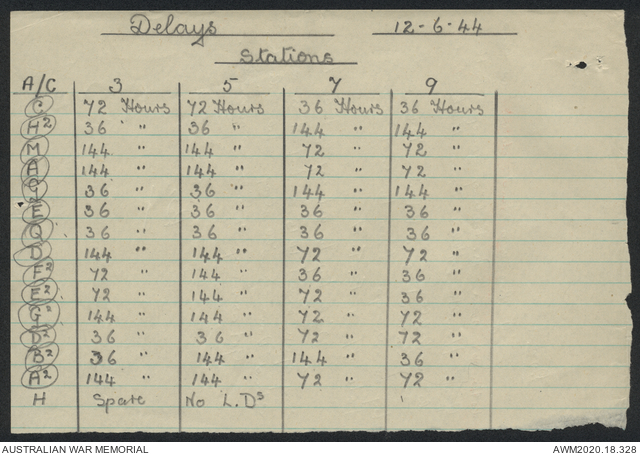 Delays 12-6-44
Stations
A/C 3 5 7 9
C 72 Hours 72 Hours 36 Hours 36 Hours
H2 36 " 36 " 144 " 144 "
M 144 " 144 " 72 " 72 "
A 144 " 144 " 72 " 72 "
36 " 36 " 144 " 144 "
E 36 " 36 " 36 " 36 "
Q 36 " 36 " 36 " 36 "
D 144 " 144 " 72 " 72 "
F2 72 " 144 " 36 " 36 "
E2 72 " 144 " 72 " 36 "
G2 144 " 144 " 72 " 72 "
D2 36 " 36 " 72 " 72 "
B2 36 " 144 " 144 " 36 "
A2 144 " 144 " 72 " 72 "
H Spare No L.Ds
AUSTRALIAN WAR MEMORIAL AWM2020.18.328